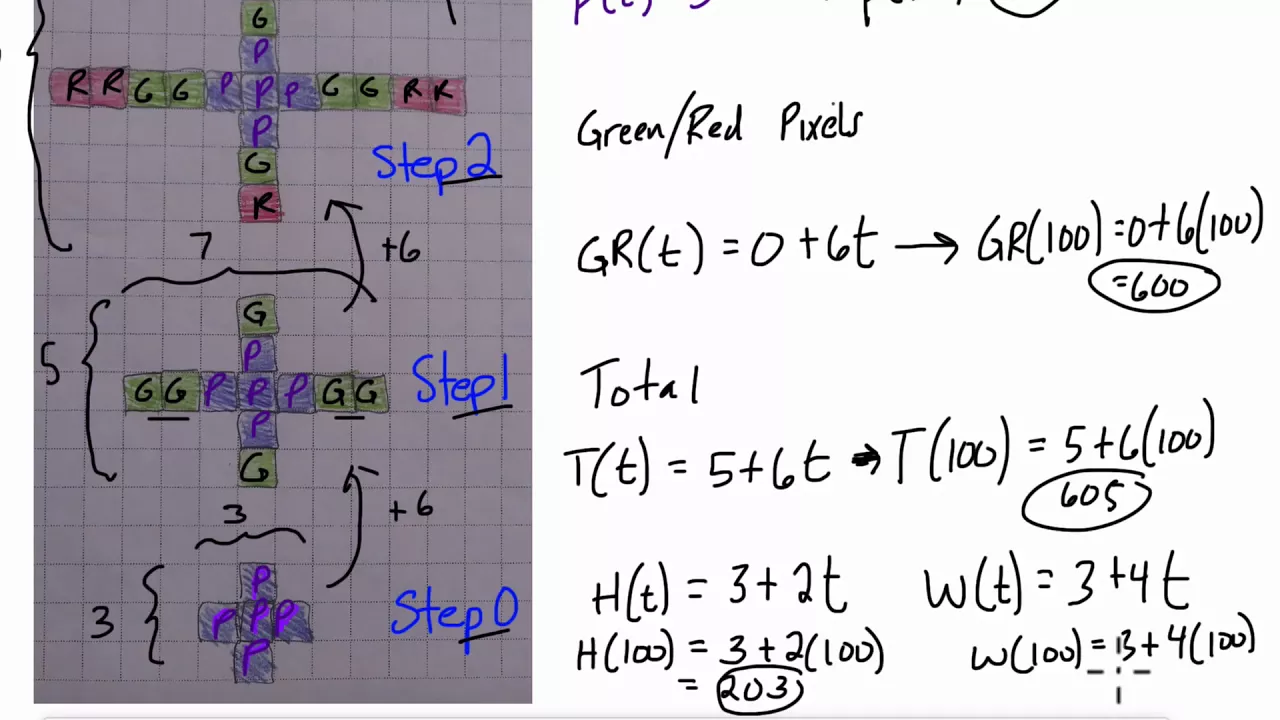 G
P
R R G G P P P G G R R
P
G
R
Step 2
7
+6
5
G
P
G G P P P G G
P
G
Step 1
3
+6
3
P
P P P
P
Step 0
Green/Red Pixels
GR(t) = 0 + 6t → GR(100) = 0 + 6(100)
= 600
Total
T(t) = 5 + 6t → T(100) = 5 + 6(100)
605
H(t) = 3 + 2t
H(100) = 3 + 2(100)
= 203
W(t) = 3 + 4t
W(100) = 3 + 4(100)